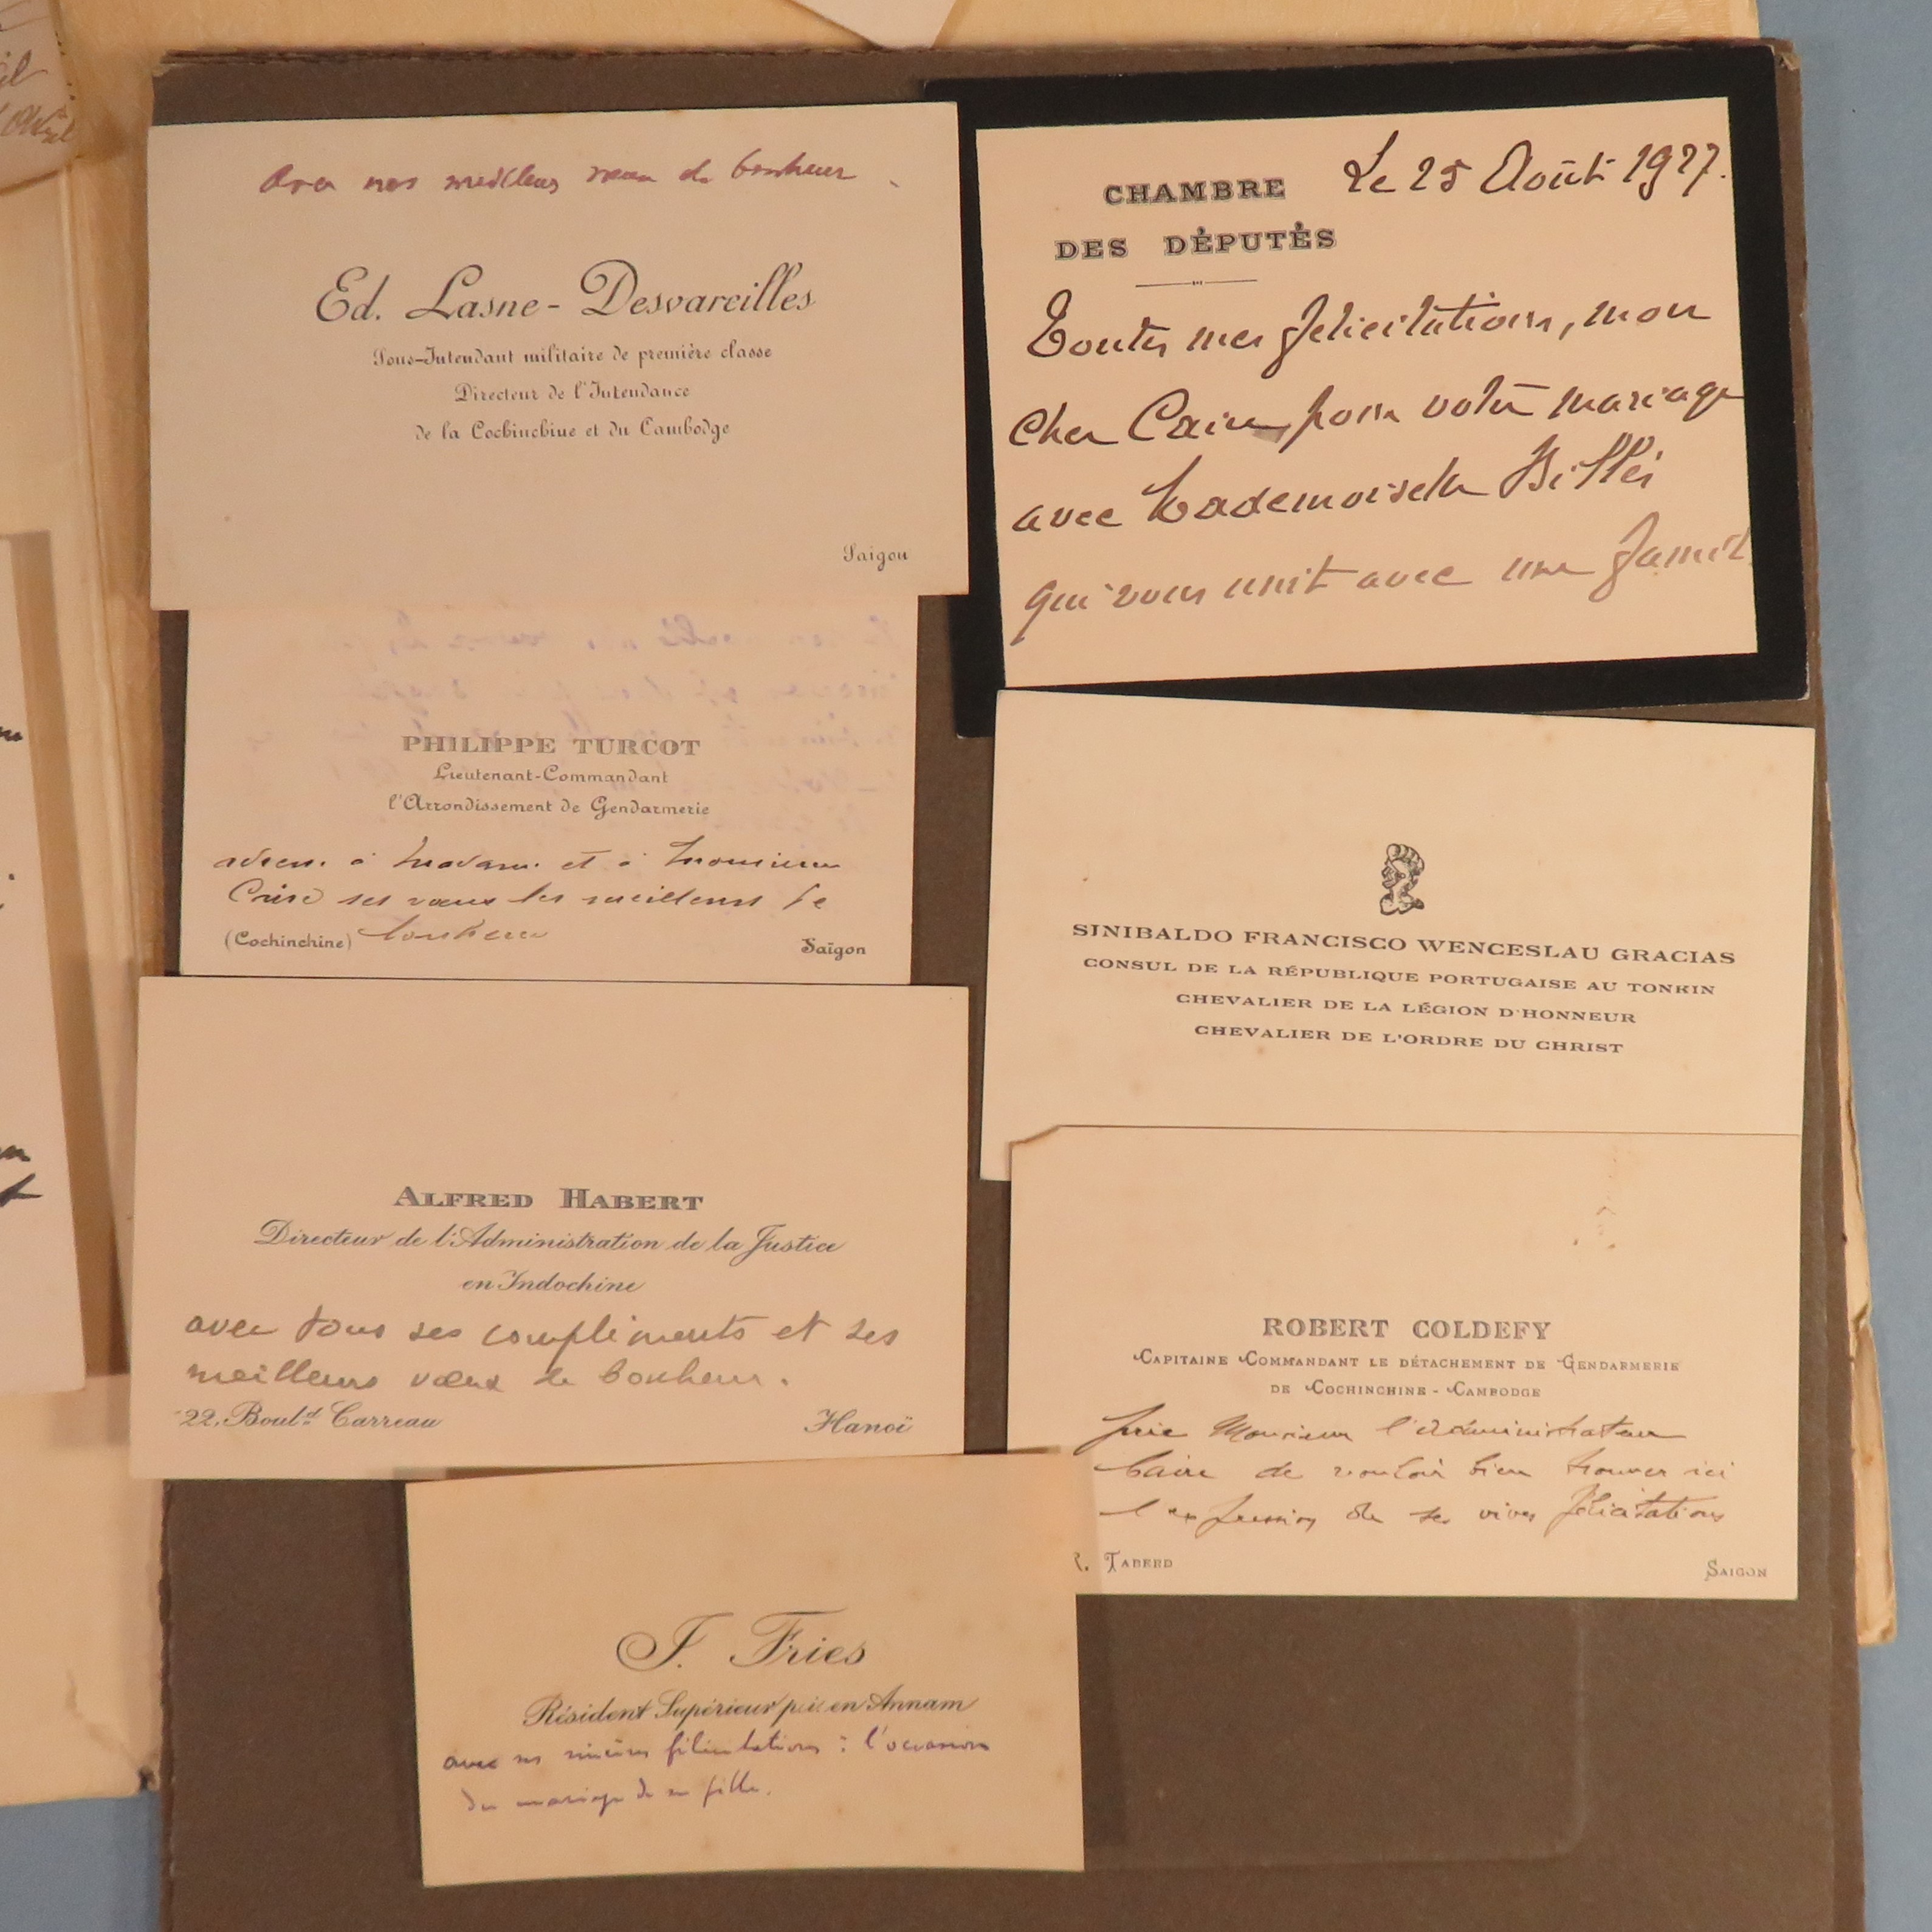 Avec nos meilleurs vœux de bonheur
Ed. Lasne-Desvareilles
Sous-Intendant militaire de première classe
Directeur de l'Intendance
de la Cochinchine et du Cambodge
Saigon
CHAMBRE
DES DÉPUTÉS
Le 25 Août 1927.
Toutes mes félicitations, mon
cher Caire, pour votre mariage
avec Mademoiselle
qui vous unit avec une famil
PHILIPPE TURCOT
Lieutenant-Commandant
l'Arrondissement de Gendarmerie
adresse à Madame et à Monsieur
Caire ses vœux les meilleurs de
bonheur
(Cochinchine)
Saïgon
SINIBALDO FRANCISCO WENCESLAU GRACIAS
CONSUL DE LA RÉPUBLIQUE PORTUGAISE AU TONKIN
CHEVALIER DE LA LÉGION D'HONNEUR
CHEVALIER DE L'ORDRE DU CHRIST
ALFRED HABERT
Directeur de l'Administration de la Justice
en Indochine
avec tous ses compliments et ses
meilleurs vœux de bonheur.
22, Boul.d Carreau
Hanoï
ROBERT COLDEFY
CAPITAINE COMMANDANT LE DÉTACHEMENT DE GENDARMERIE
DE COCHINCHINE - CAMBODGE
prie Monsieur l'administrateur
Caire de vouloir bien trouver ici
l'expression de ses vives félicitations
R. TABERD
SAIGON
J. Fries
Résident Supérieur p.i. en Annam
avec ses sincères félicitations à l'occasion
du mariage de sa fille.